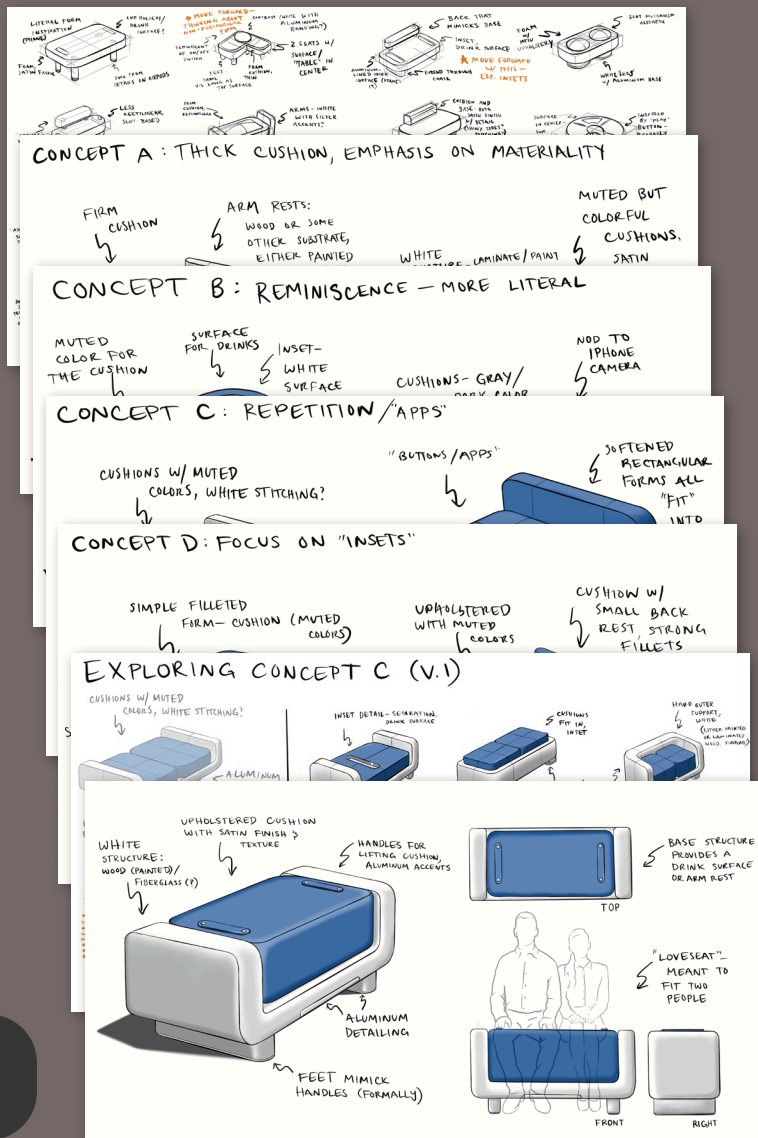 LITERAL FORM
INSPIRATION
(PHONE)
DRINK
SURFACE?
FOAM,
SATIN FABRIC
DETAILS IN AIRPODS
* MOVE FORWARD—
THINKING ABOUT
NON-RECTANGULAR
FORM
ALUMINUM
BANDING?
SWITCH
2 SEATS W/
SURFACE/
"TABLE" IN
CENTER
FEET
SAME
TOP SURFACE
FOAM
CUSHION,
THIN
BACK THAT
MIMICKS BASE
INSET
DRINK SURFACE
* MOVE FORWARD
W/ THIS—
ESP. INSETS
EXTEND THROUGH
CHAIR
FOAM
W/ SATIN
UPHOLSTERY
AESTHETIC
WHITE LEGS
W/ ALUMINUM BASE
LESS
RECTILINEAR,
SLOT-BASED
ARMS—WHITE
WITH SILVER
ACCENTS?
CUSHION AND
BASE BOTH
SATIN FINISH
W/ DETAIL
INSPIRED
BY "PLAY"
BUTTON—
CONCEPT A: THICK CUSHION, EMPHASIS ON MATERIALITY
FIRM
CUSHION
ARM RESTS:
WOOD OR SOME
OTHER SUBSTRATE,
EITHER PAINTED
WHITE
LAMINATE/PAINT
MUTED BUT
COLORFUL
CUSHIONS,
SATIN
CONCEPT B: REMINISCENCE — MORE LITERAL
MUTED
COLOR FOR
THE CUSHION
SURFACE
FOR DRINKS
INSET—
WHITE
SURFACE
CUSHIONS—GRAY/
DARK COLOR
NOD TO
IPHONE
CAMERA
CONCEPT C: REPETITION/"APPS"
CUSHIONS W/ MUTED
COLORS, WHITE STITCHING?
"BUTTONS/APPS"
SOFTENED
RECTANGULAR
FORMS ALL
"FIT"
INTO
CONCEPT D: FOCUS ON "INSETS"
SIMPLE FILLETED
FORM— CUSHION (MUTED
COLORS)
UPHOLSTERED
WITH MUTED
COLORS
CUSHION W/
SMALL BACK
REST, STRONG
FILLETS
EXPLORING CONCEPT C (V.1)
CUSHIONS W/ MUTED
COLORS, WHITE STITCHING?
ALUMINUM
INSET DETAIL—SEPARATION,
DRINK SURFACE
CUSHIONS
FIT IN,
INSET
HARD OUTER
SUPPORT,
WHITE
(EITHER PAINTED
OR LAMINATED
WHITE
STRUCTURE:
WOOD (PAINTED)/
FIBERGLASS(?)
UPHOLSTERED CUSHION
WITH SATIN FINISH &
TEXTURE
HANDLES FOR
LIFTING CUSHION,
ALUMINUM ACCENTS
ALUMINUM
DETAILING
FEET MIMICK
HANDLES (FORMALLY)
TOP
BASE STRUCTURE
PROVIDES A
DRINK SURFACE
OR ARM REST
"LOVESEAT"—
MEANT TO
FIT TWO
PEOPLE
FRONT
RIGHT